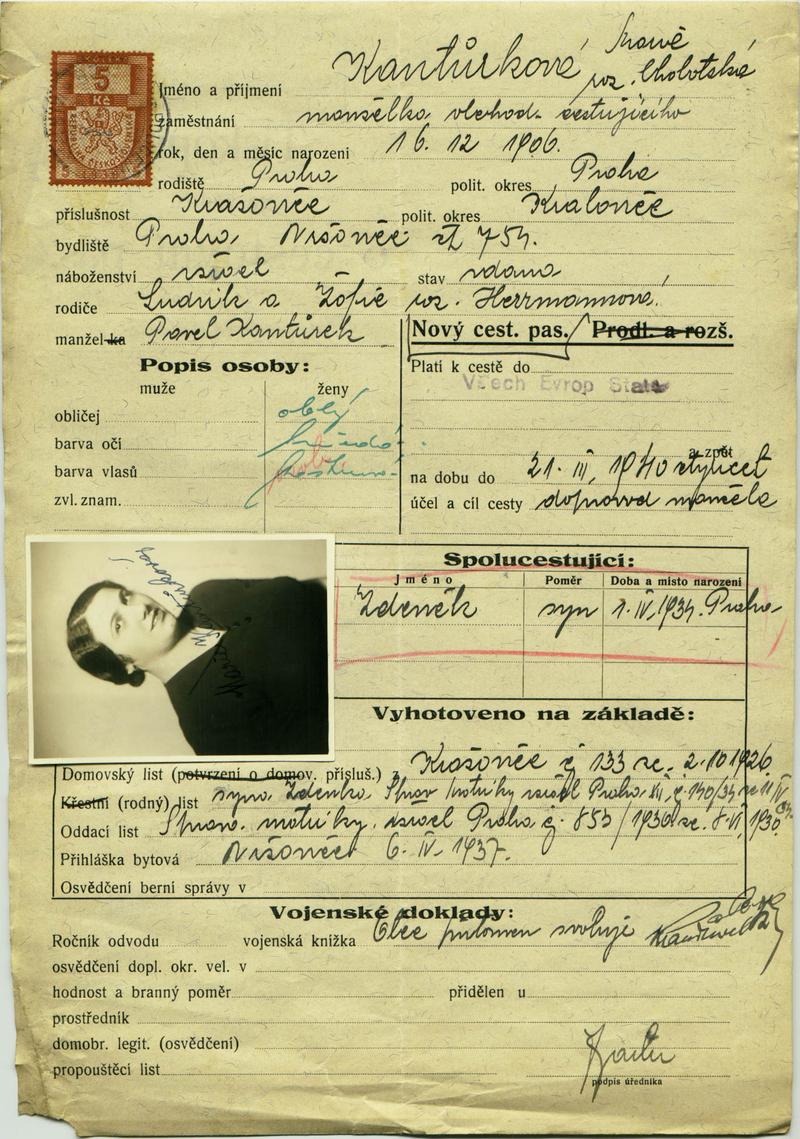 5
Kč
Kantůrková
roz.
Jméno a příjmení
zaměstnání manželka obchod. cestujícího
rok, den a měsíc narození 16. 12 1906.
rodiště Praha polit. okres Praha
příslušnost Krašovice polit. okres Kralovice
bydliště Praha, čp 754.
náboženství israel stav vdaná
rodiče Ludvík a Žofie roz. Herrmannová
manžel-ka Pavel Kantůrek
Nový cest. pas. / Prodl. a rozš.
Popis osoby:
muže ženy
Platí k cestě do
Všech Evrop Států
obličej oblý
barva očí hnědé
barva vlasů
zvl. znam.
a zpět
na dobu do 21. III. 1940 čtyřicet
účel a cíl cesty doprovod manžela
Spolucestující:
Jméno Poměr Doba a místo narození
Zdeněk syn 1. IV. 1934. Praha
Vyhotoveno na základě:
Domovský list (potvrzení o domov. přísluš.) z Krašovice čj 133 ze 2. 10 1926
Křestní (rodný) list syna Zdeňka Správ matriky israel Praha
Oddací list Správ. matriky israel Praha čj. 853/1930 ze. 8. VI. 1930
Přihláška bytová 6. IV. 1937.
Osvědčení berní správy v
Vojenské doklady:
Ročník odvodu vojenská knížka Otec přítomen svoluje
osvědčení dopl. okr. vel. v
hodnost a branný poměr přidělen u
prostředník
domobr. legit. (osvědčení)
propouštěcí list
podpis úředníka